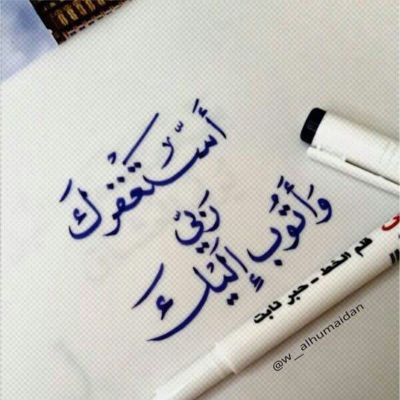 أَسْتَغْفِرُكَ
رَبِّي
وَأَتُوبُ إِلَيْكَ
قلم الخط - حبر ثابت
@w__alhumaidan